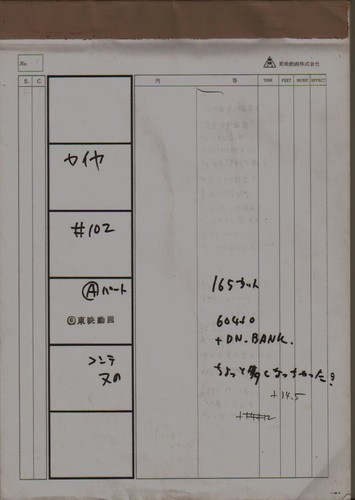 No.
東映動画株式会社
S. C. 内 容 TIME FEET MUSIC EFFECT
セイヤ
#102
Ⓐパート
165カット
ⓒ東映動画
60450
+DN.BANK.
コンテ
ちょっと多くなっちゃった?
+14.5